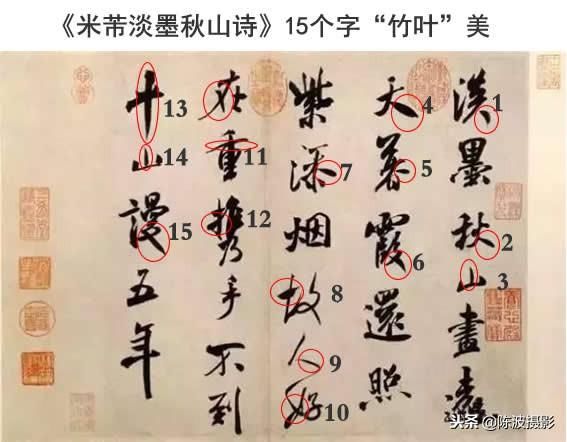 《米芾淡墨秋山诗》15个字“竹叶”美
淡墨秋山畫遠
1
2
3
天暮霞還照
4
5
6
紫添烟故人好
7
8
9
10
在重攜手不到
11
12
平山漫五年
13
14
15
头条@陈波摄影